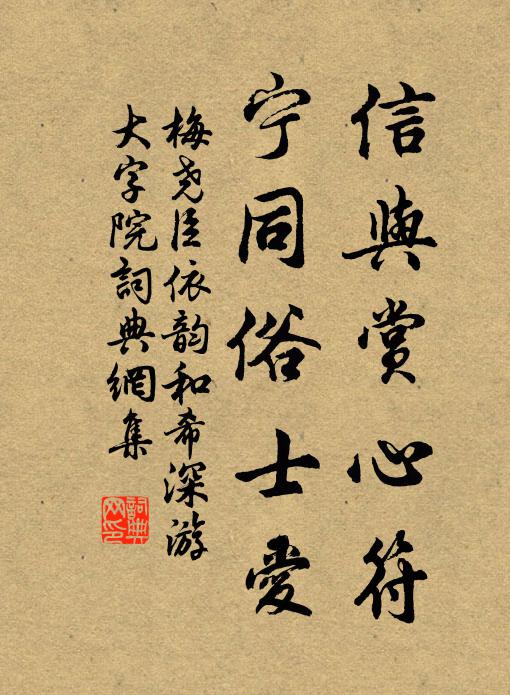 信與賞心符
宁同俗士愛
梅尧臣依韵和希深游
大字院詞典網集
詞典
网印